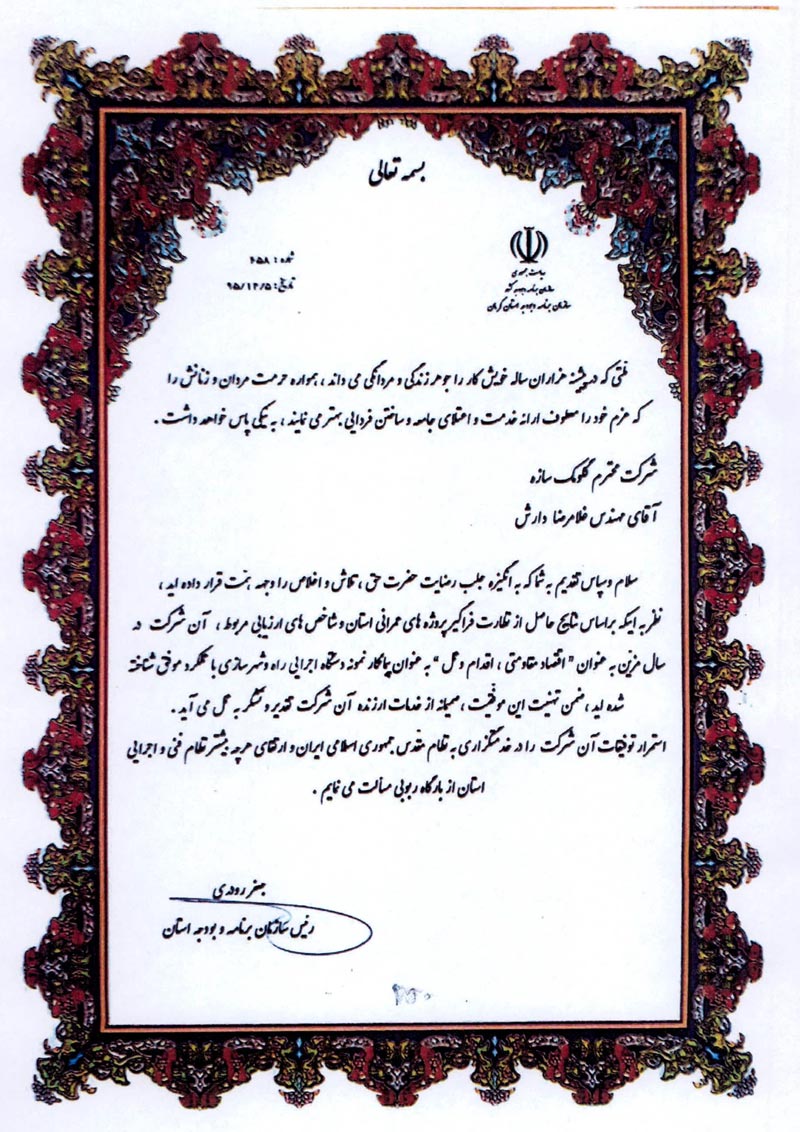 بسمه تعالی
ریاست جمهوری
سازمان برنامه و بودجه کشور
سازمان برنامه و بودجه استان کرمان
شماره : ۴۵۸
تاریخ : ۹۵/۱۲/۵
ملتی که در پیشینه هزاران ساله خویش کار را جوهر زندگی و مردانگی می داند ، همواره حرمت مردان و زنانش را
که عزم خود را معطوف ارائه خدمت و اعتلای جامعه و ساختن فردایی بهتر می نمایند ، به نیکی پاس خواهد داشت .
شرکت محترم گلومک سازه
آقای مهندس غلامرضا دارش
سلام و سپاس تقدیم به شما که به انگیزه جلب رضایت حضرت حق ، تلاش و اخلاص را وجهه همت قرار داده اید ،
نظر به اینکه براساس نتایج حاصل از نظارت فراگیر پروژه های عمرانی استان و شاخص های ارزیابی مربوط ، آن شرکت در
سال مزین به عنوان "اقتصاد مقاومتی ، اقدام و عمل" به عنوان پیمانکار نمونه دستگاه اجرایی راه و شهرسازی با عملکرد موفق شناخته
شده اید ، ضمن تهنیت این موفقیت ، صمیمانه از خدمات ارزنده آن شرکت تقدیر و تشکر به عمل می آید .
استمرار توفیقات آن شرکت را در خدمتگزاری به نظام مقدس جمهوری اسلامی ایران و ارتقای هرچه بیشتر نظام فنی و اجرایی
استان از بارگاه ربوبی مسألت می نمایم .
جعفر رودری
رئیس سازمان برنامه و بودجه استان